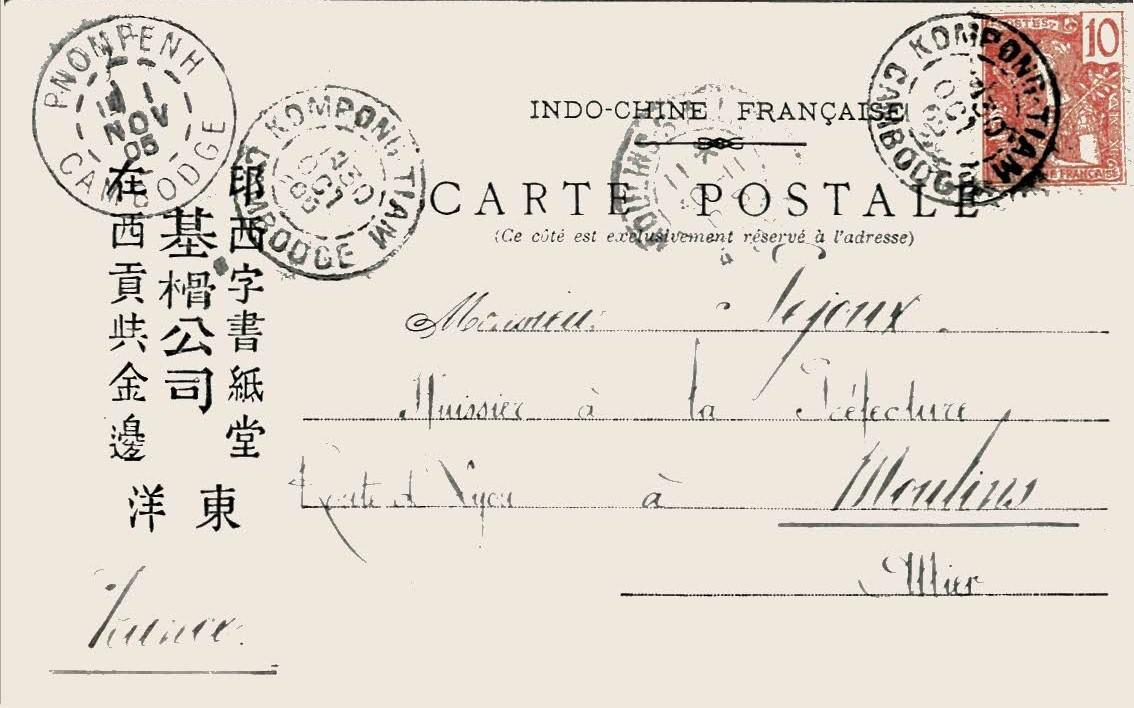 PNOMPENH
1
NOV
05
CAMBODGE
KOMPONG-TIAM
OCT
05
CAMBODGE
KOMPONG-TIAM
OCT
CAMBODGE
POSTES
10
INDO-CHINE FRANÇAISE
MOULINS
CARTE POSTALE
(Ce côté est exclusivement réservé à l'adresse)
印西字書紙堂
基榾公司
在西貢共金邊
東洋
Monsieur Lejoux
Huissier à la Préfecture
Route de Lyon à Moulins
Allier
France